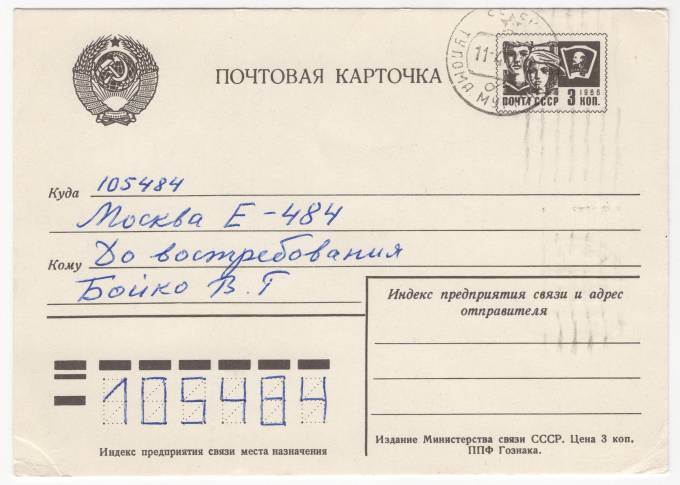 ПОЧТОВАЯ КАРТОЧКА
ПОЧТА СССР 3 КОП.
1966
11
Куда 105484
Москва Е-484
Кому До востребования
Бойко В.Г
Индекс предприятия связи и адрес
отправителя
105484
Индекс предприятия связи места назначения
Издание Министерства связи СССР. Цена 3 коп.
ППФ Гознака.